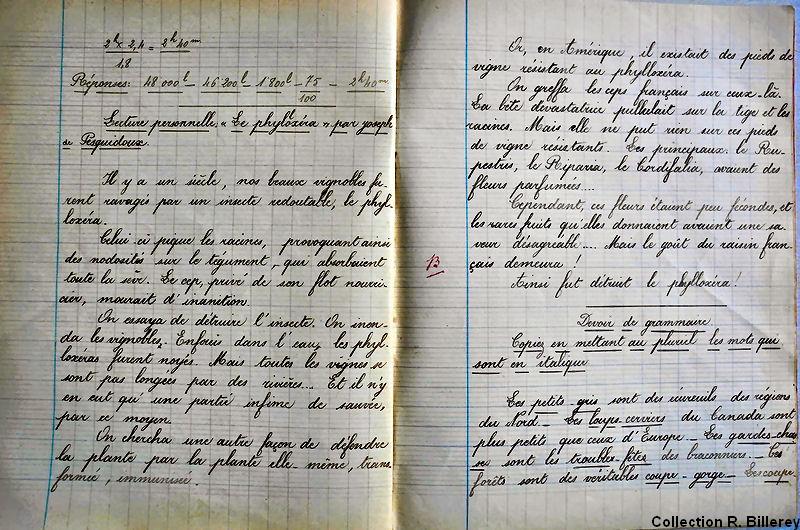 2h x 2,4 = 2h 40m
1,8
Réponses: 48 000l _ 46 200l _ 1 800l _ 75 _ 2h 40m
100
Lecture personnelle: « Le phyloxéra » par Joseph
de Pesquidoux.
Il y a un siècle, nos beaux vignobles fu-
rent ravagés par un insecte redoutable, le phyl-
loxéra.
Celui-ci pique les racines, provoquant ainsi
des nodosités sur le tégument, qui absorbaient
toute la sève. Le cep, privé de son flot nourri-
cier, mourait d'inanition.
On essaya de détruire l'insecte. On inon-
da les vignobles. Enfouis dans l'eau, les phyl-
loxéras furent noyés. Mais toutes les vignes ne
sont pas longées par des rivières... Et il n'y
en eut qu'une partie infime de sauvée,
par ce moyen.
On chercha une autre façon de défendre
la plante par la plante elle-même, trans-
formée, immunisée.
13
Or, en Amérique, il existait des pieds de
vigne résistant au phylloxéra.
On greffa les ceps français sur ceux-là.
La bête dévastatrice pullulait sur la tige et les
racines. Mais elle ne put rien sur ces pieds
de vigne résistants. Les principaux: le Ru-
pestres, le Riparia, le Cordifalia, avaient des
fleurs parfumées....
Cependant, ces fleurs étaient peu fécondes, et
les rares fruits qu'elles donnaient avaient une sa-
veur désagréable.... Mais le goût du raisin fran-
çais demeura!
Ainsi fut détruit le phylloxéra!
Devoir de grammaire.
Copiez en mettant au pluriel les mots qui
sont en italique
Les petits-gris sont des écureuils des régions
du Nord _ Les loups-cerviers du Canada sont
plus petits que ceux d'Europe _ Les gardes-chas-
se sont les trouble-fêtes des braconniers _ Les
forêts sont des véritables coupe-gorge _ Les coupe-
Collection R. Billerey